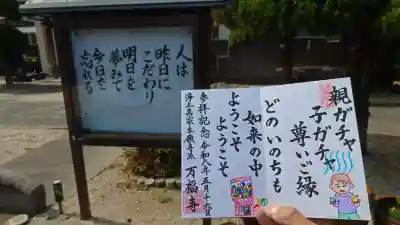 人は
昨日にこだわり
明日を
夢みて
今日を
忘れる
親ガチャ
子ガチャ
尊いご縁
どのいのちも
如来の中
ようこそ
ようこそ
参拝記念 令和八年五月十六日
浄土真宗本願寺派 万福寺